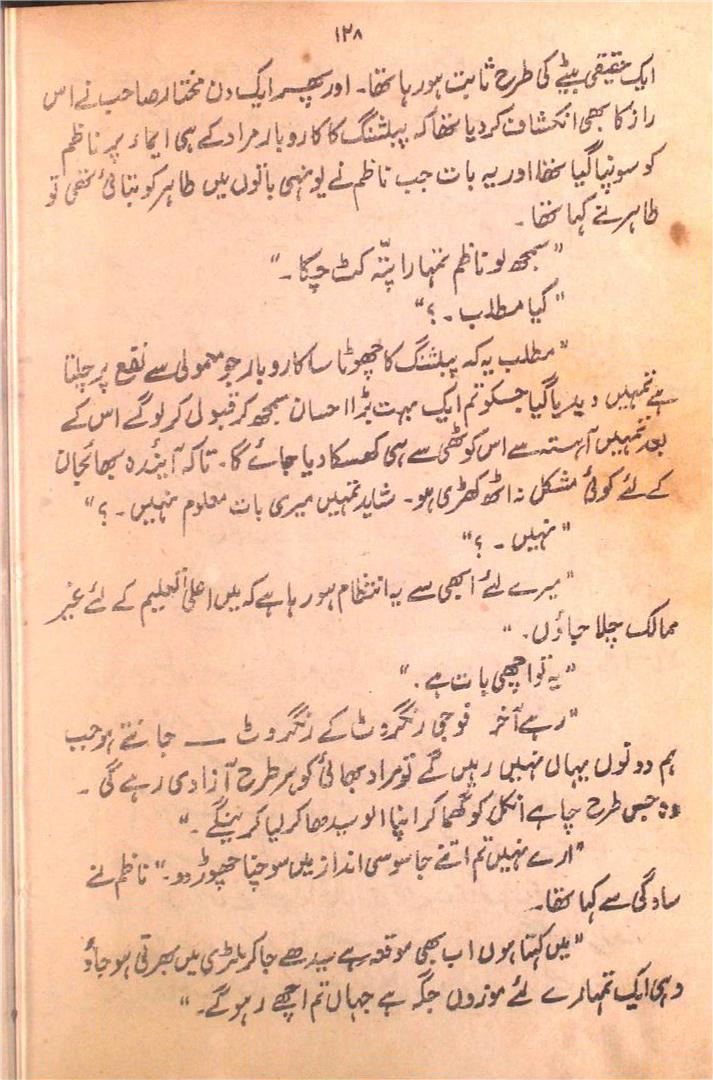 ۱۲۸
ایک حقیقی بیٹے کی طرح ثابت ہورہا تھا۔ اور پھر ایک دن مختار صاحب نے اس
راز کا بھی انکشاف کردیا تھا کہ پبلشنگ کا کاروبار مراد کے ہی ایماء پر ناظم
کو سونپا گیا تھا اور یہ بات جب ناظم نے یونہی باتوں میں طاہر کو بتائی تھی تو
طاہر نے کہا تھا۔
"سمجھ لو ناظم تمہارا پتّہ کٹ چکا۔"
"کیا مطلب۔؟"
"مطلب یہ کہ پبلشنگ کا چھوٹا سا کاروبار جو معمولی سے نفع پر چلتا
ہے تمہیں دیدیا گیا جسکو تم ایک بہت بڑا احسان سمجھ کر قبول کرلوگے اس کے
بعد تمہیں آہستہ سے اس کوٹھی سے ہی کھسکا دیا جائے گا۔ تاکہ آیئندہ بھائجان
کے لئے کوئی مشکل نہ اٹھ کھڑی ہو۔ شاید تمہیں میری بات معلوم نہیں۔؟"
"نہیں۔؟"
"میرے لئے ابھی سے یہ انتظام ہورہا ہے کہ میں اعلیٰ تعلیم کے لئے غیر
ممالک چلا جاؤں۔"
"یہ تو اچھی بات ہے۔"
"رہے آخر فوجی رنگروٹ کے رنگروٹ — جانتے ہو جب
ہم دونوں یہاں نہیں رہیں گے تو مراد بھائی کو ہر طرح آزادی رہے گی۔
وہ جس طرح چاہے انکل کو گھما کر اپنا الو سیدھا کرلیا کرینگے۔"
"ارے نہیں تم اتنے جاسوسی انداز میں سوچنا چھوڑ دو۔" ناظم نے
سادگی سے کہا تھا۔
"میں کہتا ہوں اب بھی موقعہ ہے سیدھے جاکر ملٹری میں بھرتی ہوجاؤ
وہی ایک تمہارے لئے موزوں جگہ ہے جہاں تم اچھے رہوگے۔"